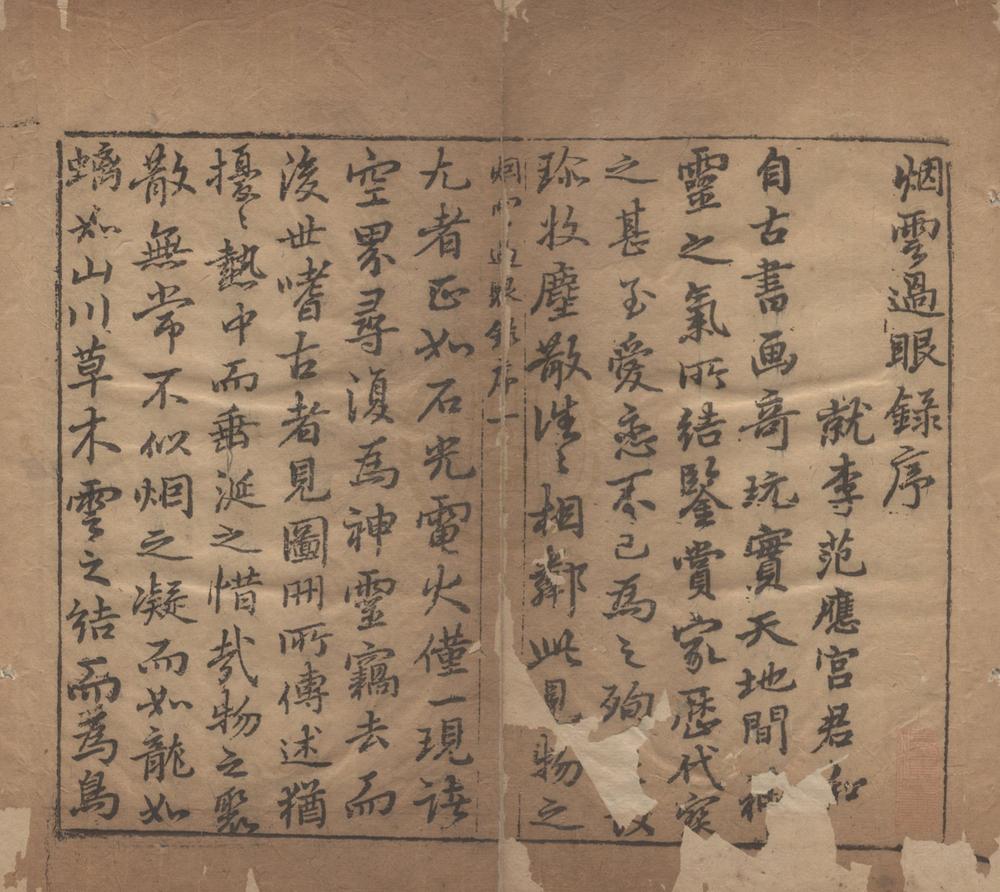 烟雲過眼録序
就李范應宫君和
自古書画奇玩實天地間神
靈之氣所結鑒賞家歷代寶
之甚至愛恋不已為之殉
珎收塵散徃〻相鄰此見物之
烟雲過眼錄序一
尤者正如石光電火僅一現諸
空界尋復為神靈竊去而
後世嗜古者見圖冊所傳述猶
擾〻熱中而垂涎之惜㢤物之聚
散無常不似烟之凝而如龍如
螭如山川草木雲之結而為鳥